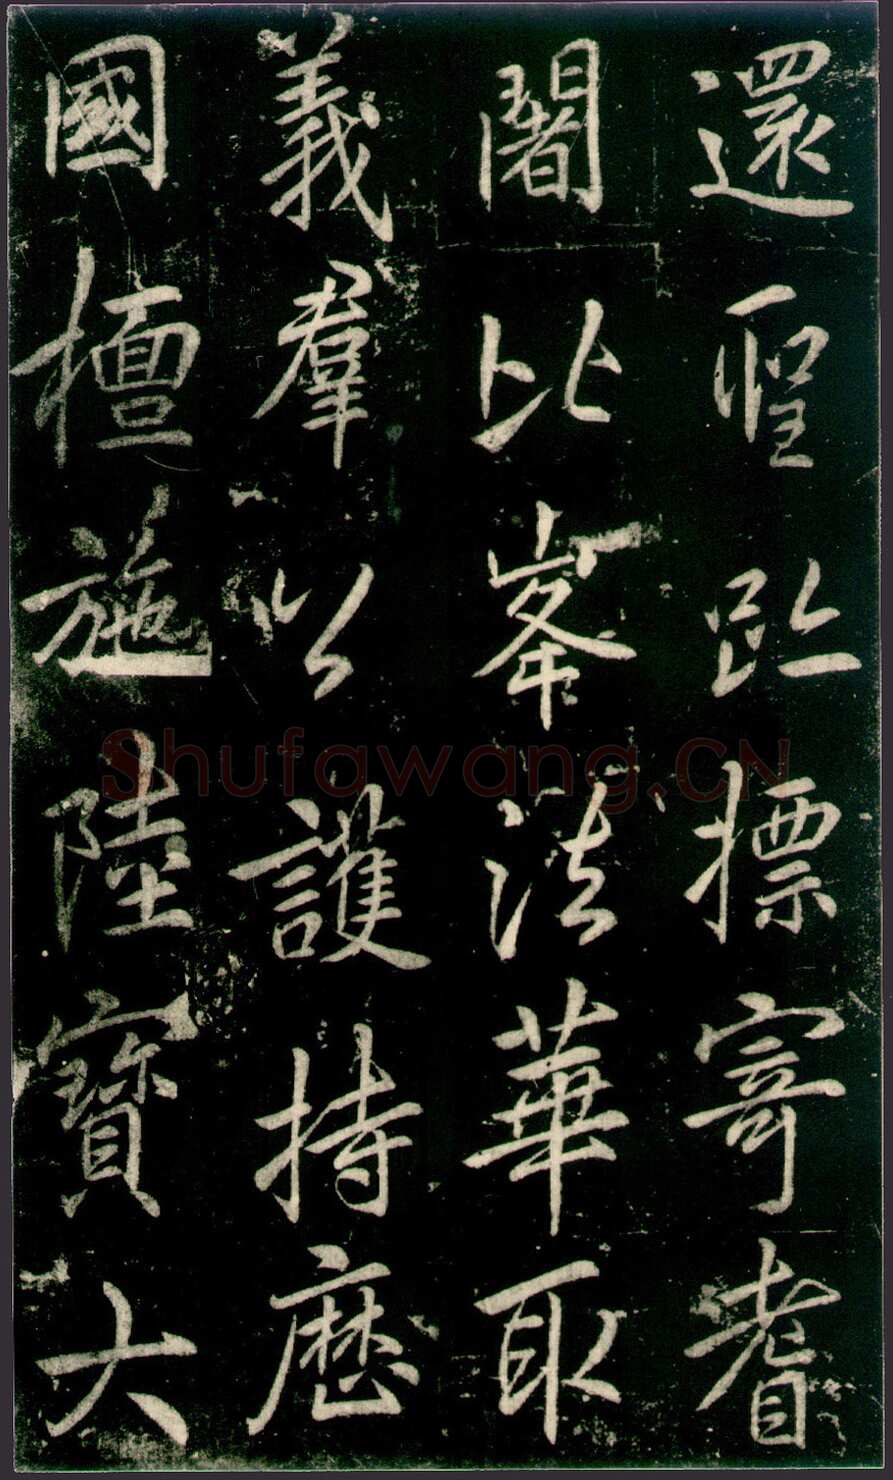 還聖趾標寄耆
闍比峯法華取
義羣以護持歷
國檀施陸寶大
Shufawang.CN